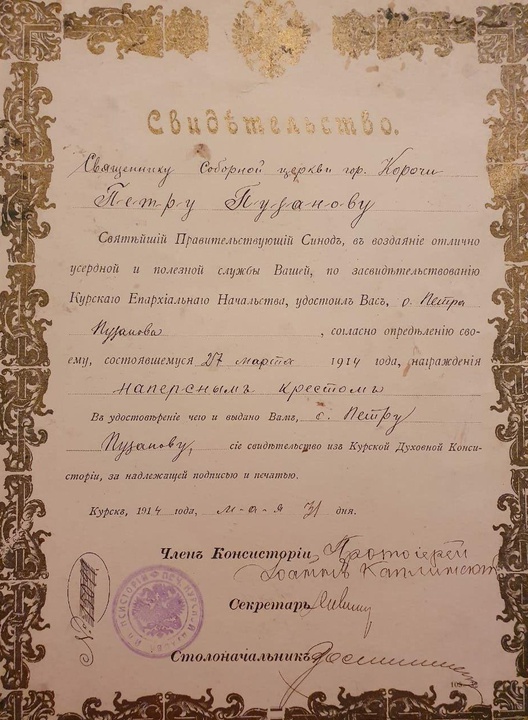 Свидѣтельство.
Священнику Соборной церкви гор. Корочи
Петру Пузанову
Святѣйшій Правительствующій Синодъ, въ воздаяніе отлично
усердной и полезной службы Вашей, по засвидѣтельствованію
Курскаго Епархіальнаго Начальства, удостоилъ Васъ, о. Петра
Пузанова, согласно опредѣленію сво-
ему, состоявшемуся 27 марта 1914 года, награжденія
наперснымъ крестомъ
Въ удостовѣреніе чего и выдано Вамъ, о. Петру
Пузанову, сіе свидѣтельство изъ Курской Духовной Конси-
сторіи, за надлежащей подписью и печатью.
Курскъ, 1914 года, м-а-я 31 дня.
Членъ Консисторіи, Протоіерей
Іоаннъ
Секретарь
Столоначальникъ
№